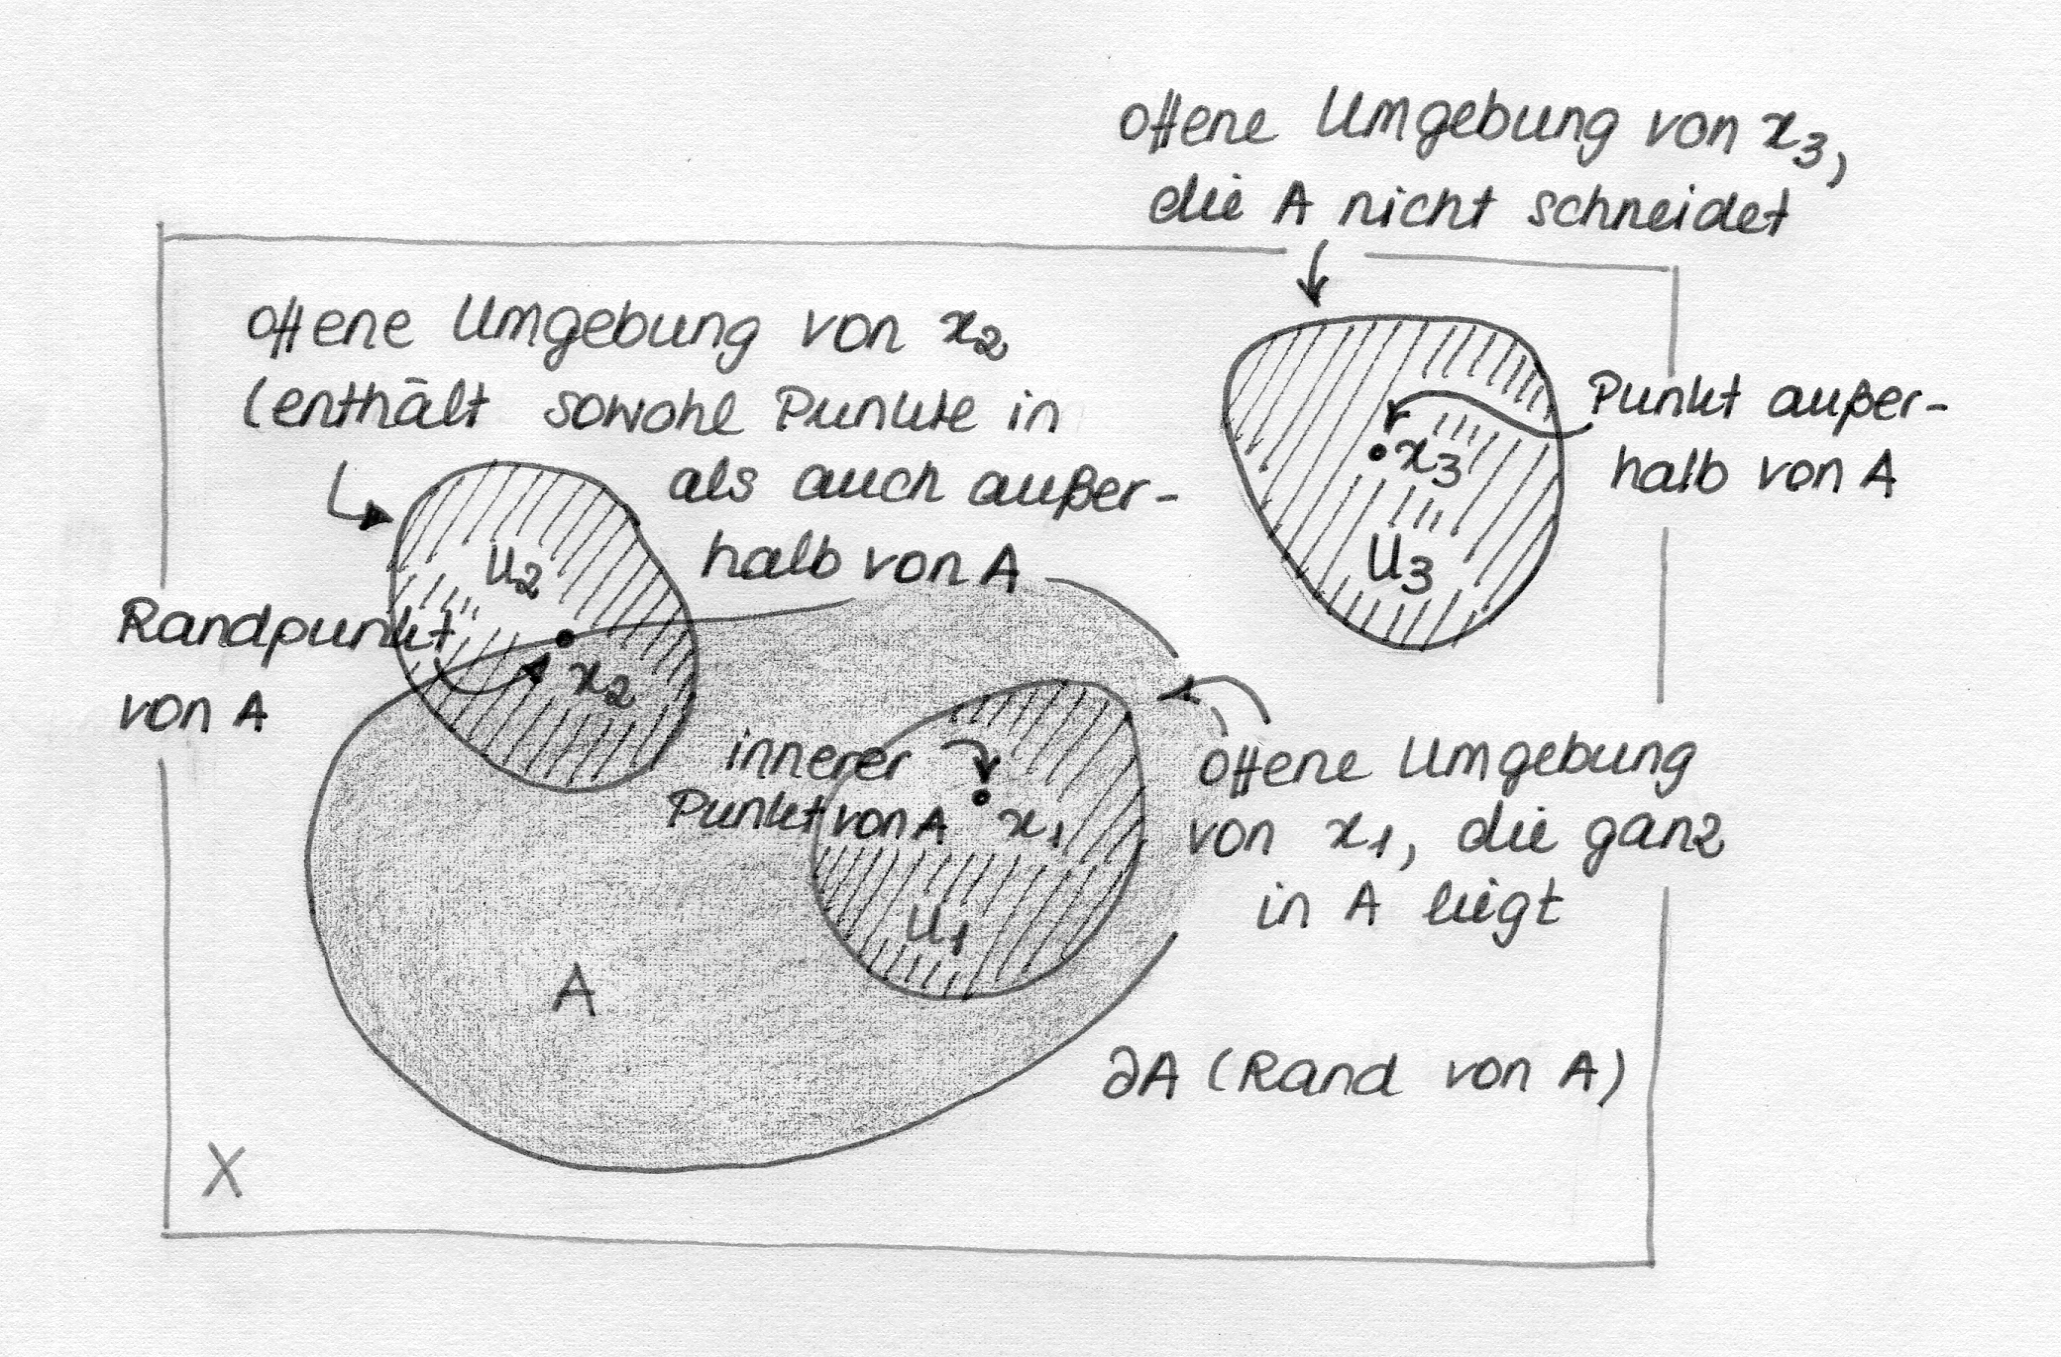 offene Umgebung von x₃,
die A nicht schneidet
offene Umgebung von x₂
(enthält sowohl Punkte in
als auch außer-
halb von A
Punkt außer-
halb von A
x₃
U₃
U₂
Randpunkt
von A
x₂
innerer
Punkt von A
x₁
U₁
offene Umgebung
von x₁, die ganz
in A liegt
A
∂A (Rand von A)
X